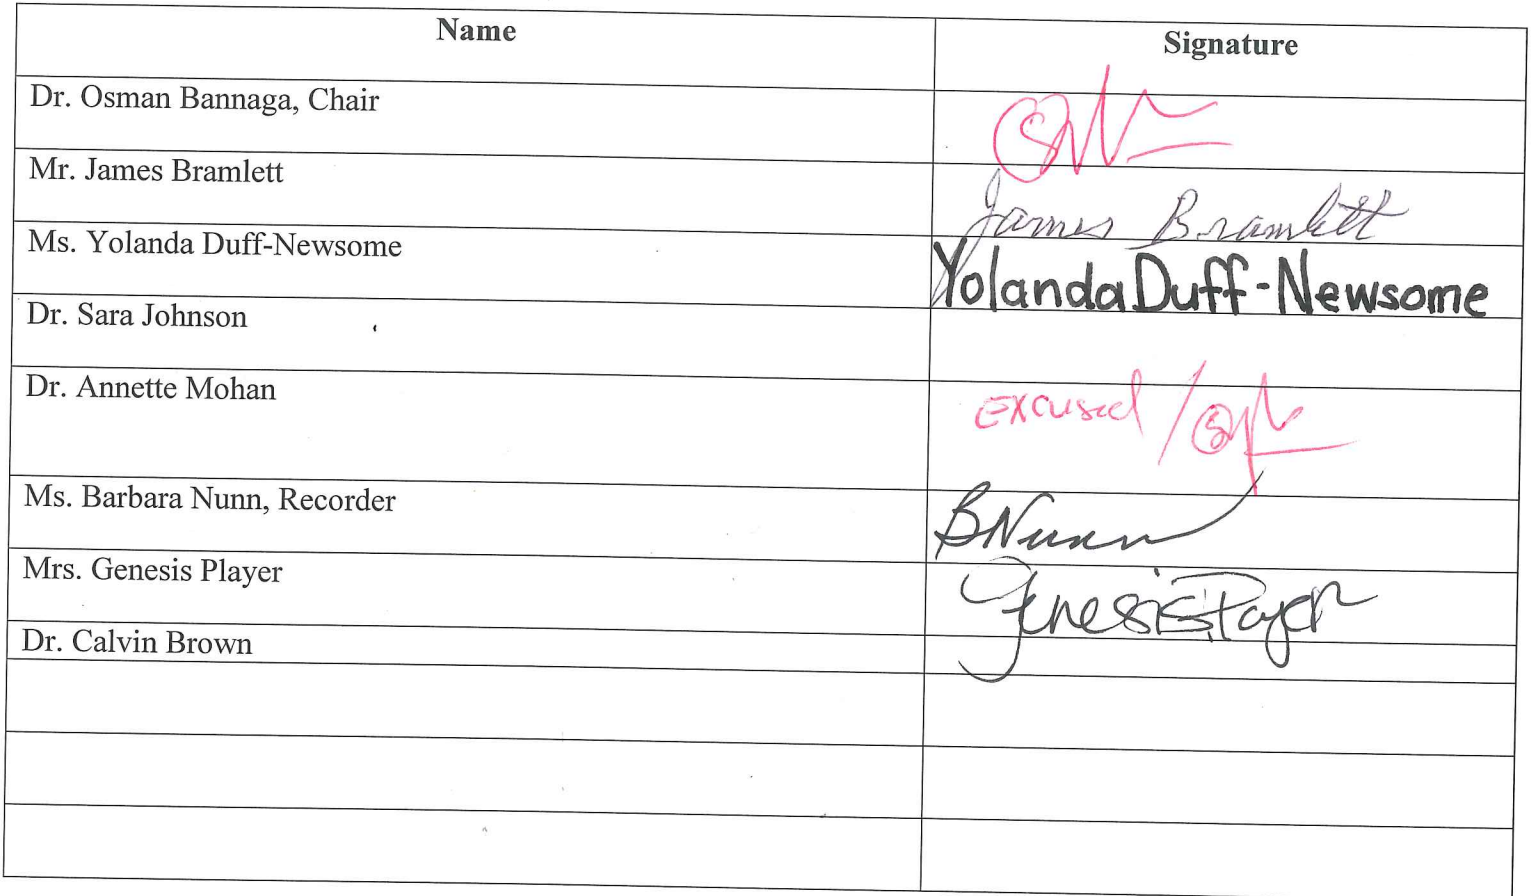 Name Signature
Dr. Osman Bannaga, Chair
Mr. James Bramlett James Bramlett
Ms. Yolanda Duff-Newsome Yolanda Duff-Newsome
Dr. Sara Johnson
Dr. Annette Mohan Excused /
Ms. Barbara Nunn, Recorder BNunn
Mrs. Genesis Player Genesis Player
Dr. Calvin Brown